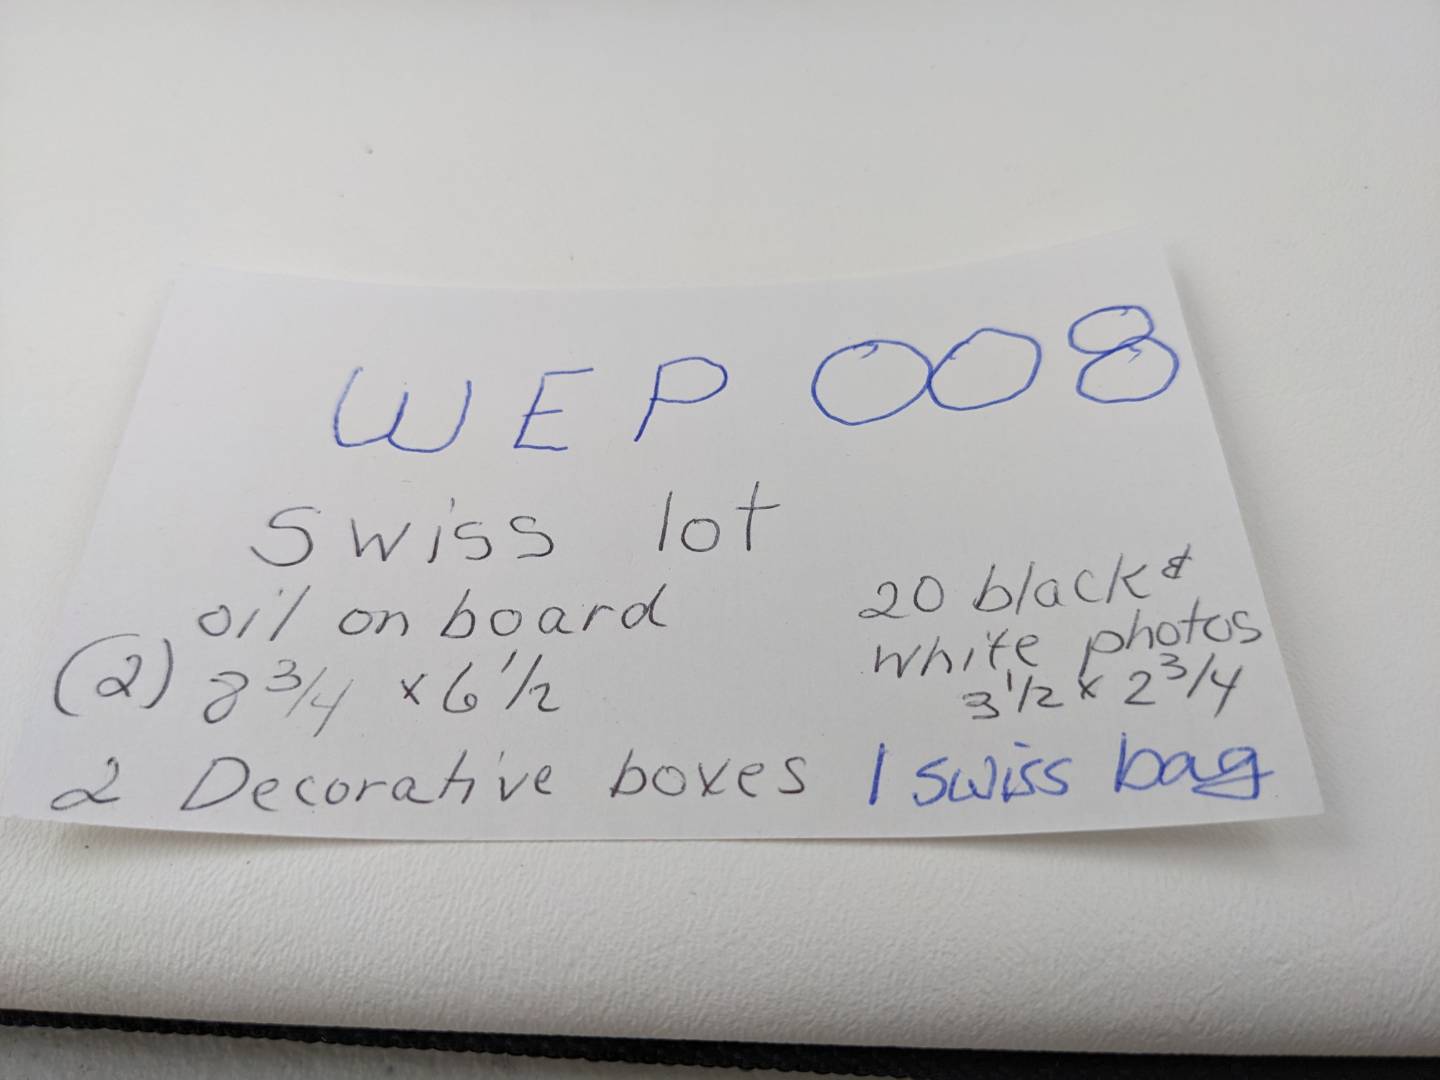 WEP 008
Swiss lot
oil on board
(2) 8 3/4 x 6 1/2
20 black &
white photos
3 1/2 x 2 3/4
2 Decorative boxes 1 swiss bag